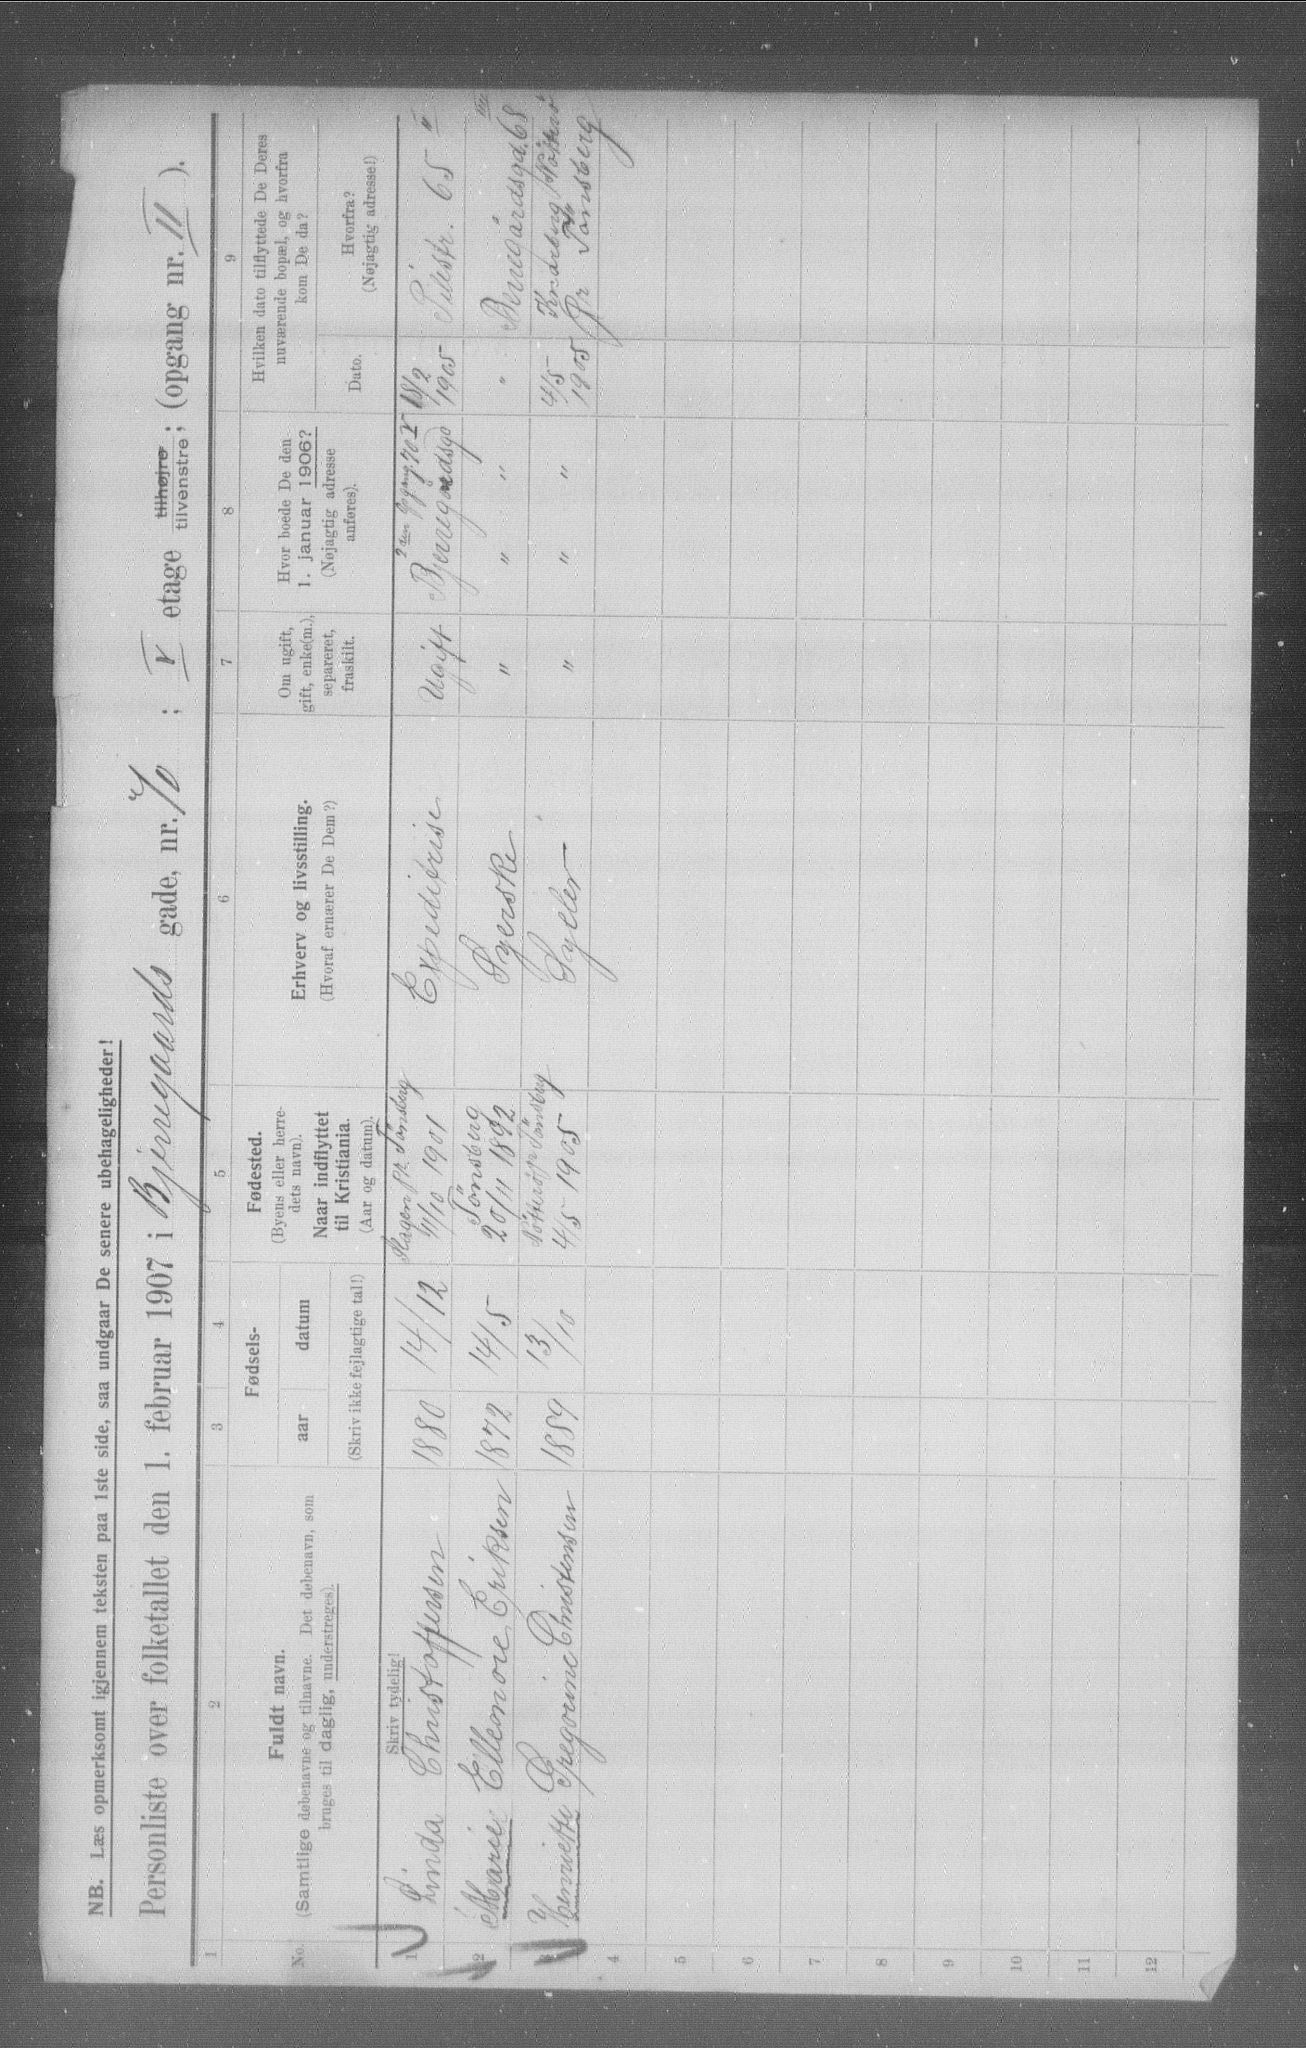 NB. Læs opmerksomt igjennem teksten paa 1ste side, saa undgaar De senere ubehageligheder!
Personliste over folketallet den 1. februar 1907 i Bjerregaards gade, nr. 70 ; V etage tilhøjre tilvenstre ; (opgang nr. II ).
1 2 3 4 5 6 7 8 9
No.
Fuldt navn.
(Samtlige døbenavne og tilnavne. Det døbenavn, som
bruges til daglig, understreges).
Fødsels-
aar datum
(Skriv ikke fejlagtige tal!)
Fødested.
(Byens eller herre-
dets navn).
Naar indflyttet
til Kristiania.
(Aar og datum).
Erhverv og livsstilling.
(Hvoraf ernærer De Dem?)
Om ugift,
gift, enke(m.),
separeret,
fraskilt.
Hvor boede De den
1. januar 1906?
(Nøjagtig adresse
anføres).
Hvilken dato tilflyttede De Deres
nuværende bopæl, og hvorfra
kom De da?
Dato.
Hvorfra?
(Nøjagtig adresse!)
Skriv tydelig!
1 Linda Christoffersen 1880 14/12 Slagen pr. Tønsberg 1901 Expeditrise Ugift 2den opgang 70 V Bjerregaardsgd 18/2 1905 Pilestr. 65 II
2 Marie Ellenore Eriksen 1872 14/5 Tønsberg 20/11 1892 Syerske " " " " Bjerregårdsgd. 68
3 Henriette Gregorine Christensen 1859 13/10 Nøtterø pr Tønsberg 4/5 1905 Syller " " " 4/5 1905 Knarberg Nøtterø Pr Tønsberg
4
5
6
7
8
9
10
11
12